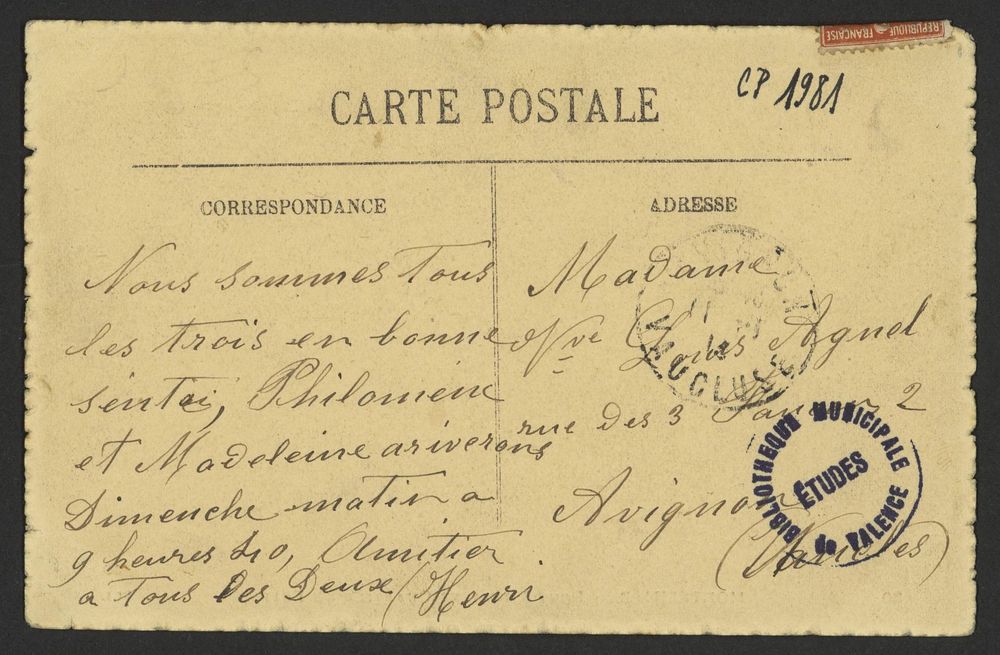 REPUBLIQUE FRANÇAISE
CP 1981
CARTE POSTALE
CORRESPONDANCE
Nous sommes Tous
les trois en bonne
sentei, Philomene
et Madeleine ariverons
Dimenche matin a
9 heures 40, Amitier
a Tous les Deux Henri
ADRESSE
Madame
Vve Louis Agnel
rue des 3 2
Avignon
(Vaucluse)
VAUCLUSE
BIBLIOTHEQUE MUNICIPALE
ÉTUDES
de VALENCE